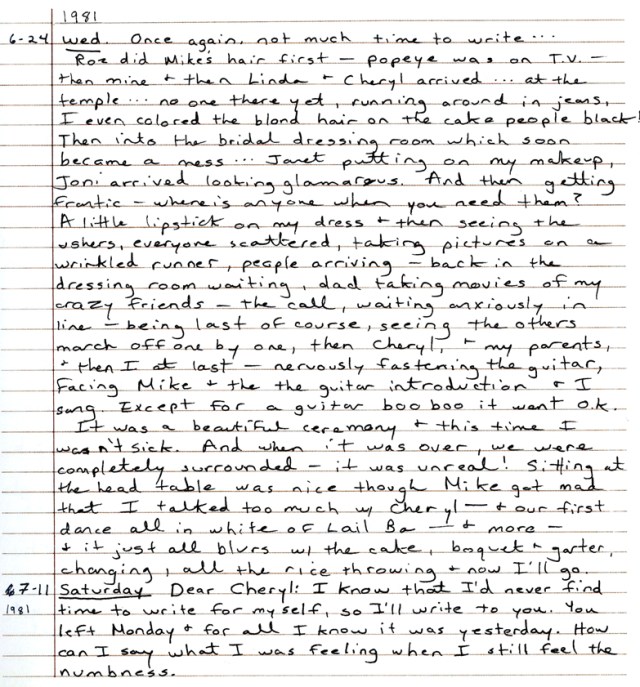 1981
6-24 Wed. Once again, not much time to write...
Roz did Mike's hair first — Popeye was on T.V. —
then mine + then Linda + Cheryl arrived ... at the
temple ... no one there yet, running around in jeans,
I even colored the blond hair on the cake people black!
Then into the bridal dressing room which soon
became a mess ... Janet putting on my makeup,
Joni arrived looking glamarous. And then getting
frantic — where is anyone when you need them?
A little lipstick on my dress + then seeing the
ushers, everyone scattered, taking pictures on a
wrinkled runner, people arriving — back in the
dressing room waiting, dad taking movies of my
crazy friends — the call, waiting anxiously in
line — being last of course, seeing the others
march off one by one, then Cheryl, + my parents,
+ then I at last — nervously fastening the guitar,
Facing Mike + the the guitar introduction + I
sang. Except for a guitar boo boo it went o.k.
It was a beautiful ceremony + this time I
wasn't sick. And when it was over, we were
completely surrounded — it was unreal! Sitting at
the head table was nice though Mike got mad
that I talked too much w/ Cheryl — + our first
dance all in white of Lail Ba — + more —
+ it just all blurs w/ the cake, boquet + garter,
changing, all the rice throwing + now I'll go.
7-11 Saturday Dear Cheryl: I know that I'd never find
1981 time to write for myself, so I'll write to you. You
left Monday + for all I know it was yesterday. How
can I say what I was feeling when I still feel the
numbness.